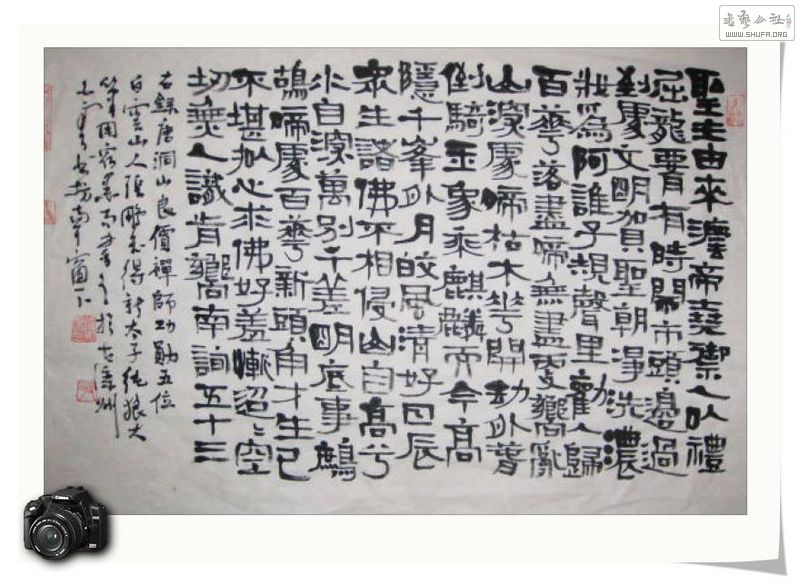 書藝公社
WWW.SHUFA.ORG
聖主由來灋帝堯御人以禮
屈龍要有時鬧市頭邊過
到處文明賀聖朝淨洗濃
妝為阿誰子規聲里勸人歸
百華落盡啼無盡更嚮亂
山深處啼枯木華開劫外萅
倒騎玉象乘麒麟而今高
隱千峯外月皎風清好日辰
眾生諸佛不相侵山自高兮
水自深萬別千差明底事鷓
鴣啼處百華新頭角才生已
不堪擬心求佛好羞慚迢迢空
劫無人識肯嚮南詢五十三
右錄唐洞山良價禪師功勳五位
白雲山人得新太子純狼大
筆用宿墨
南窗下
Canon